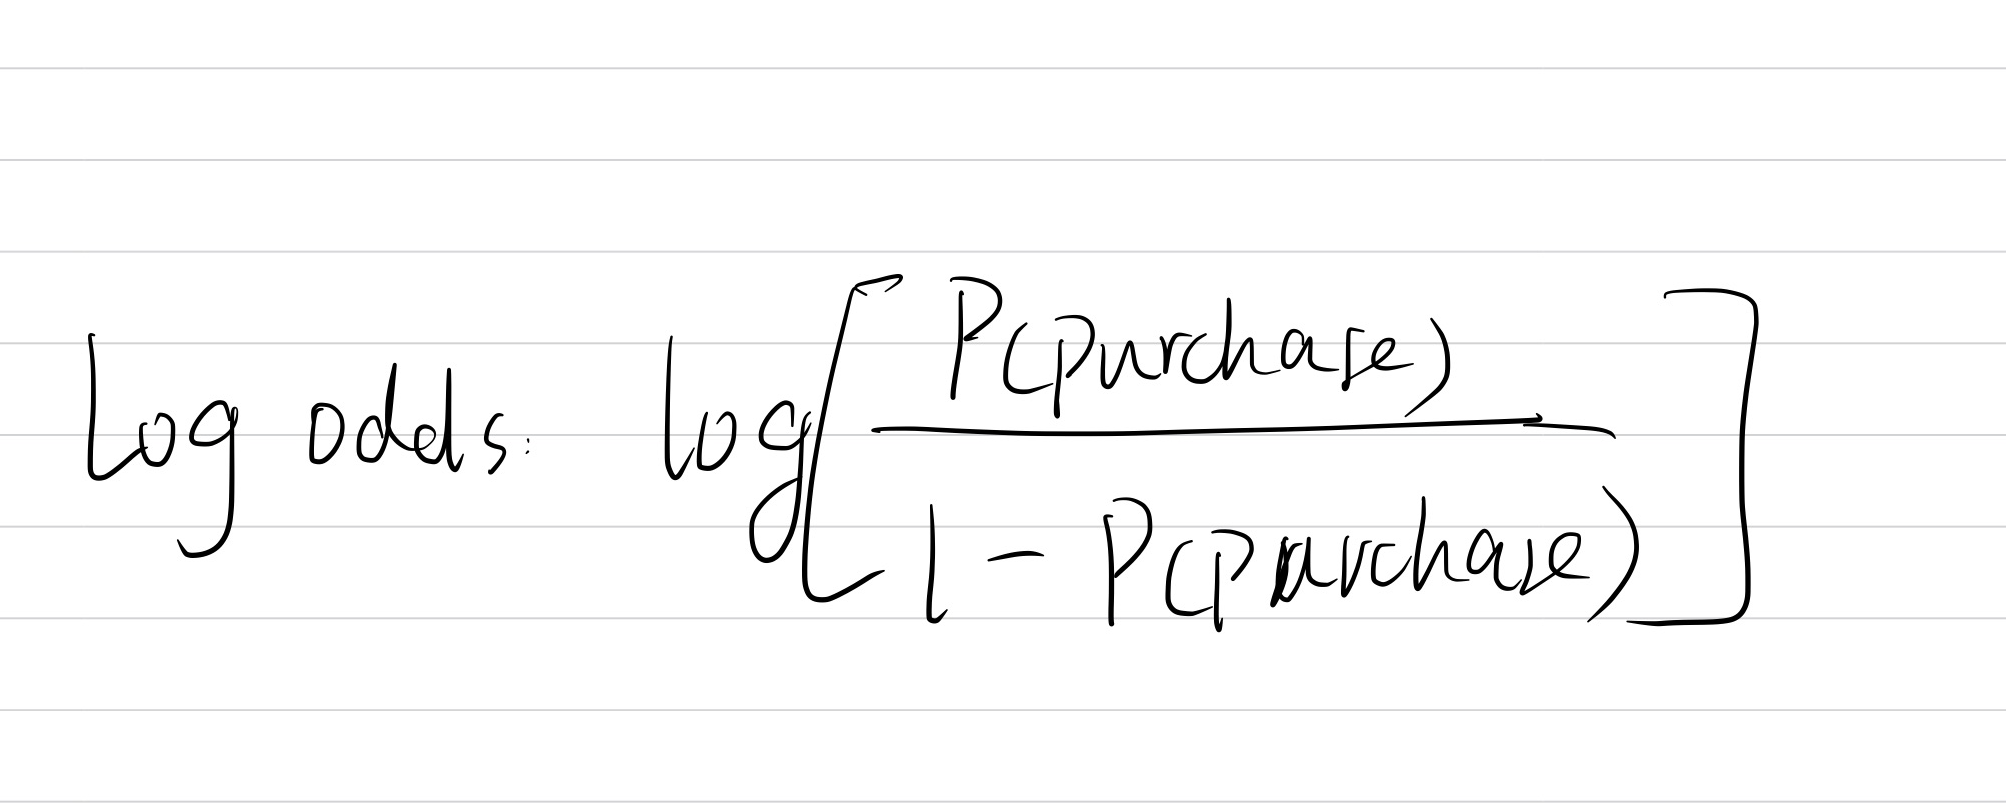 Log odds: log[ P(purchase)
1 - P(purchase) ]